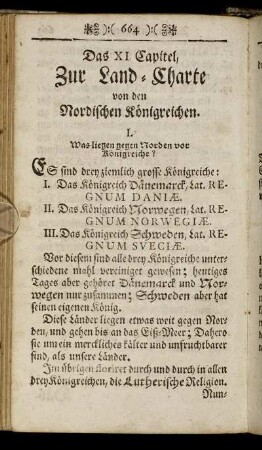 ):( 664 ):(
Das XI Capitel,
Zur Land-Charte
von den
Nordischen Königreichen.
I.
Was liegen gegen Norden vor
Königreiche?
ES sind drey ziemlich grosse Königreiche:
I. Das Königreich Dänemarck, Lat. RE-
GNUM DANIÆ.
II. Das Königreich Norwegen, Lat. RE-
GNUM NORWEGIÆ.
III. Das Königreich Schweden, Lat. RE-
GNUM SVECIÆ.
Vor diesem sind alle drey Königreiche unter-
schiedene mahl vereiniget gewesen; heutiges
Tages aber gehöret Dänemarck und Nor-
wegen nur zusammen; Schweden aber hat
seinen eigenen König.
Diese Länder liegen etwas weit gegen Nor-
den, und gehen bis an das Eiß-Meer; Dahero
sie um ein merckliches kälter und unfruchtbarer
sind, als unsere Länder.
Im übrigen floriret durch und durch in allen
drey Königreichen, die Lutherische Religion.
Nun-